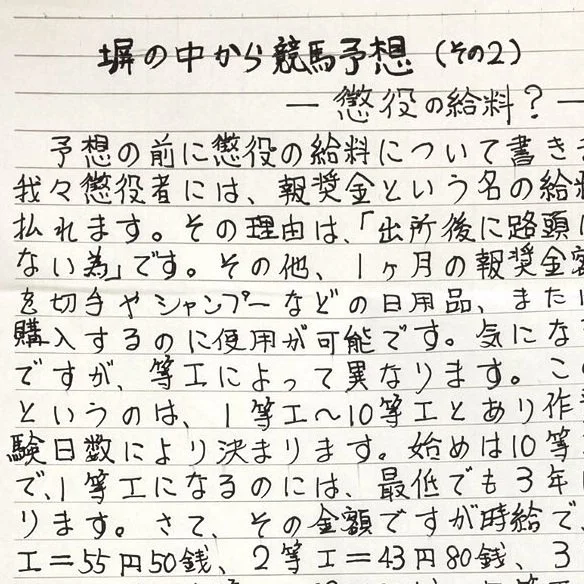 塀の中から競馬予想(その2)
― 懲役の給料? ―
予想の前に懲役の給料について書き
我々懲役者には、報奨金という名の給料
払れます。その理由は、「出所後に路頭に
ない為」です。その他、1ヶ月の報奨金額
を切手やシャンプーなどの日用品、または
購入するのに使用が可能です。気にな
ですが、等工によって異なります。この
というのは、1等工~10等工とあり作業
験日数により決まります。始めは10等
で、1等工になるのには、最低でも3年
ります。さて、その金額ですが時給で
工=55円50銭、2等工=43円80銭、3